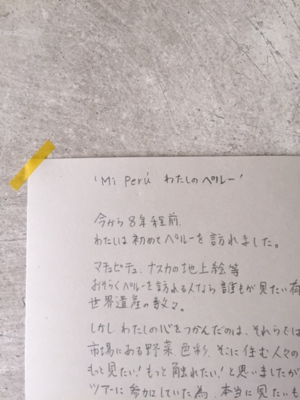 'Mi Perú わたしのペルー'
今から8年程前、
わたしは初めてペルーを訪れました。
マチュピチュ、ナスカの地上絵等
おそらくペルーを訪れる人なら誰もが見たい有
世界遺産の数々。
しかし わたしの心をつかんだのは、それらでは
市場にある野菜、色彩、そこに住む人々の
もっと見たい！もっと触れたい！と思いましたが
ツアーに参加していた為、本当に見たいも